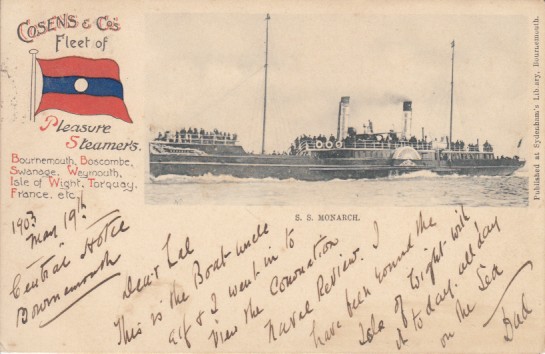 COSENS & Co's
Fleet of
Pleasure
Steamers.
Bournemouth, Boscombe,
Swanage, Weymouth,
Isle of Wight, Torquay,
France, etc.
Published at Sydenham's Library, Bournemouth.
S. S. MONARCH.
1903
May 19th
Central Hotel
Bournemouth
Dear Lal
This is the Boat uncle
Alf & I went in to
View the Coronation
Naval Review. I
have been round the
Isle of Wight with
it to day. all day
on the Sea
Dad